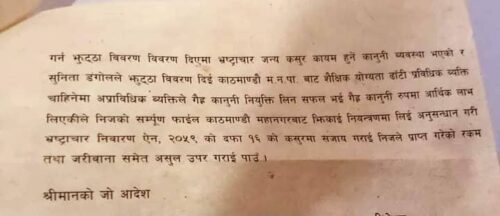 गर्न झुठ्ठा विवरण विवरण दिएमा भ्रष्टाचार जन्य कसुर कायम हुने कानुनी ब्यवस्था भएको र
सुनिता डंगोलले झुठ्ठा विवरण दिई काठमाण्डौ म.न.पा. बाट शैक्षिक योग्यता ढाँटी प्रविधिक ब्यक्ति
चाहिनेमा अप्राविधिक ब्यक्तिले गैह्र कानुनी नियुक्ती लिन सफल भई गैह्र कानुनी रुपमा आर्थिक लाभ
लिएकीले निजको सर्म्पूण फाईल काठमाण्डौ महानगरबाट झिकाई नियन्त्रणमा लिई अनुसन्धान गरी
भ्रष्टाचार निवारण ऐन, २०५९ को दफा १६ को कसुरमा सजाय गराई निजले प्राप्त गरेको रकम
तथा जरीवाना समेत असुल उपर गराई पाउँ ।
श्रीमानको जो आदेश